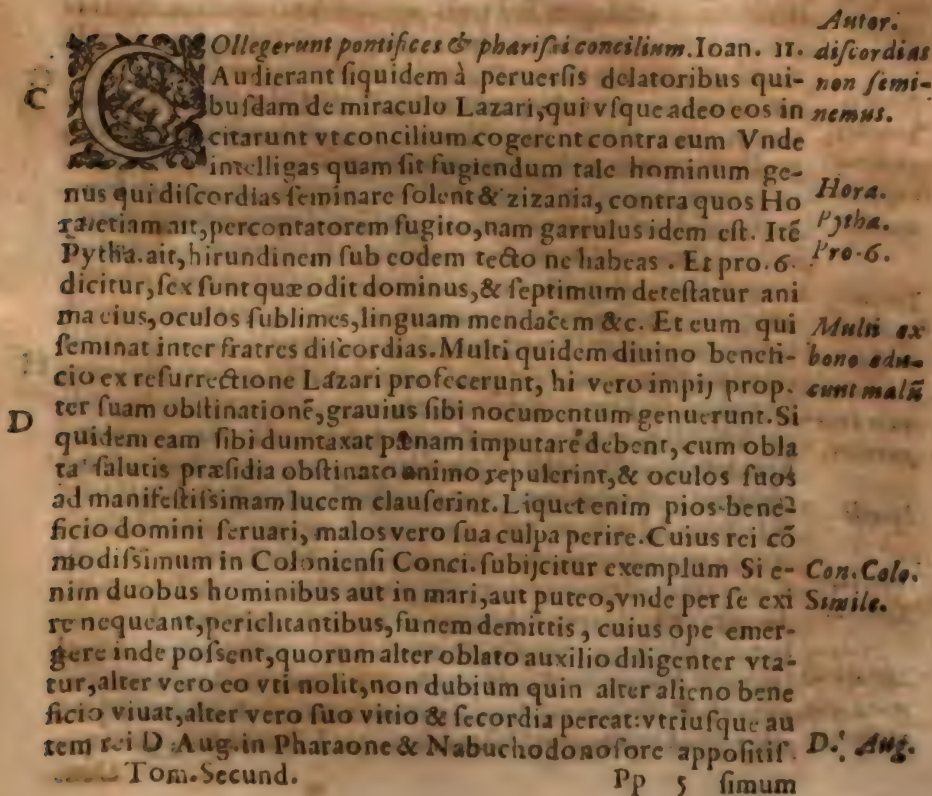 Autor.
Collegerunt pontifices & pharisæi concilium. Ioan. 11. discordias
Audierant siquidem à peruersis delatoribus qui- non semi-
C
busdam de miraculo Lazari, qui vsque adeo eos in nemus.
citarunt vt concilium cogerent contra eum Vnde
intelligas quam sit fugiendum tale hominum ge-
nus qui discordias seminare solent & zizania, contra quos Ho Hora.
ratietiam ait, percontatorem fugito, nam garrulus idem est. Itē Pytha.
Pytha. ait, hirundinem sub eodem tecto ne habeas. Et pro. 6. Pro. 6.
dicitur, sex sunt quæ odit dominus, & septimum detestatur ani
ma eius, oculos sublimes, linguam mendacem &c. Et eum qui Multi ex
seminat inter fratres discordias. Multi quidem diuino benefi- bono edu-
cio ex resurrectione Lazari profecerunt, hi vero impij prop- cunt malū
D
ter suam obstinationē, grauius sibi nocumentum genuerunt. Si
quidem eam sibi dumtaxat pœnam imputare debent, cum obla
ta salutis præsidia obstinato animo repulerint, & oculos suos
ad manifestissimam lucem clauserint. Liquet enim pios bene-
ficio domini seruari, malos vero sua culpa perire. Cuius rei cō
modissimum in Coloniensi Conci. subijcitur exemplum Si e- Con. Colo.
nim duobus hominibus aut in mari, aut puteo, vnde per se exi Simile.
re nequeant, periclitantibus, funem demittis, cuius ope emer-
gere inde possent, quorum alter oblato auxilio diligenter vta-
tur, alter vero eo vti nolit, non dubium quin alter alieno bene
ficio viuat, alter vero suo vitio & secordia pereat: vtriusque au
tem rei D. Aug. in Pharaone & Nabuchodonosore appositis- D. Aug.
Tom. Secund. Pp 5 simum